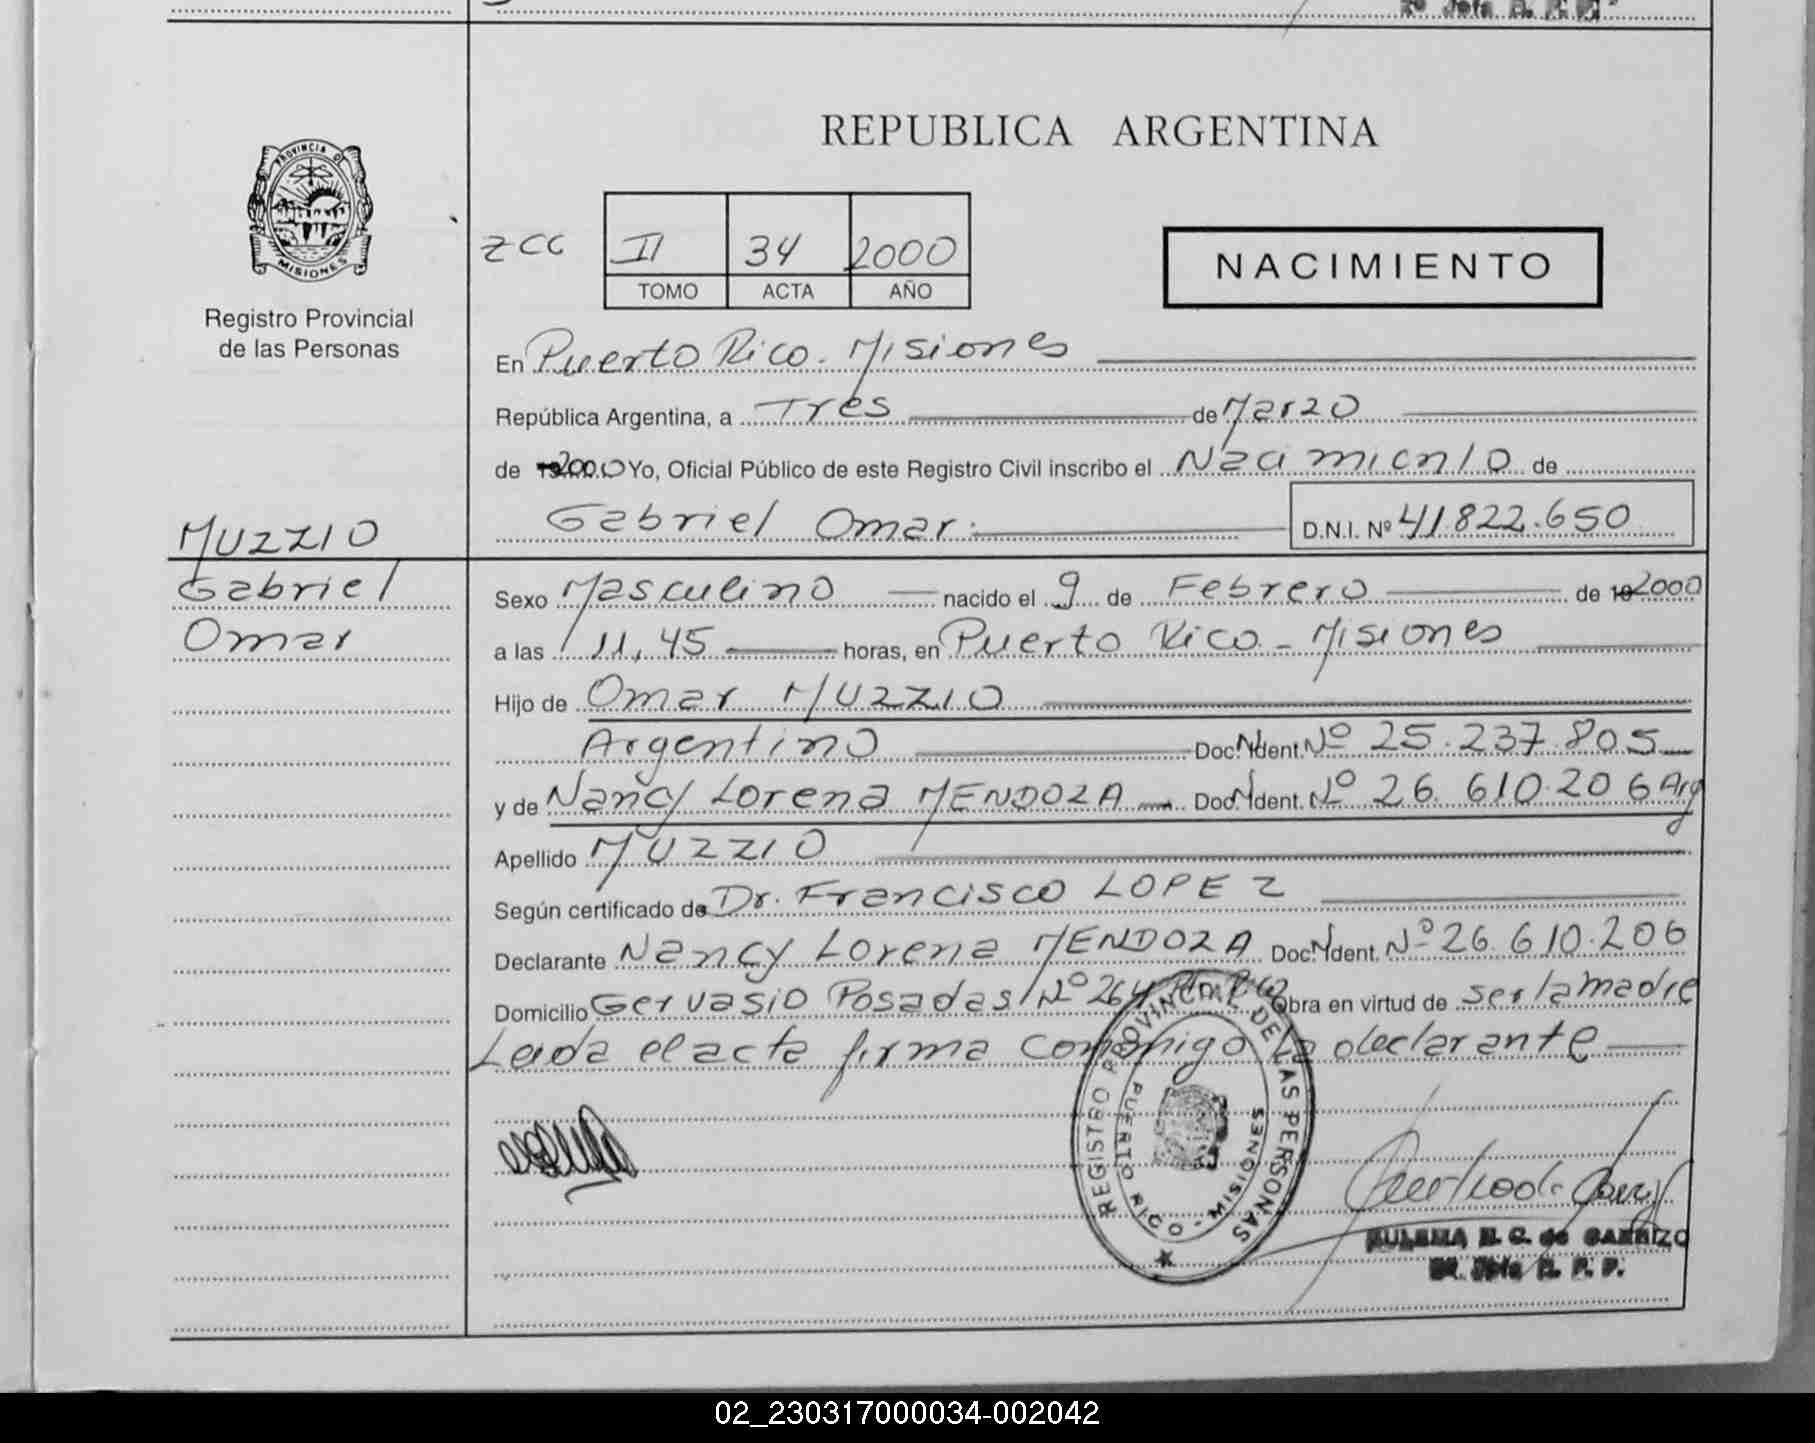 PROVINCIA DE
MISIONES
Registro Provincial
de las Personas
MUZZIO
Gabriel
Omar
REPUBLICA ARGENTINA
II 34 2000
TOMO ACTA AÑO
NACIMIENTO
En Puerto Rico. Misiones
República Argentina, a Tres de Marzo
de 2000 Yo, Oficial Público de este Registro Civil inscribo el Nacimiento de
Gabriel Omar.
D.N.I. Nº 41.822.650
Sexo Masculino nacido el 9 de Febrero de 2000
a las 11,45 horas, en Puerto Rico - Misiones
Hijo de Omar MUZZIO
Argentino Doc. Ident. Nº 25.237.805
y de Nancy Lorena MENDOZA Doc. Ident. Nº 26.610.206 Arg
Apellido MUZZIO
Según certificado de Dr. Francisco LOPEZ
Declarante Nancy Lorena MENDOZA Doc. Ident. Nº 26.610.206
Domicilio Gervasio Posadas Nº 264 Obra en virtud de ser la madre
Leida el acta firma conmigo la declarante
REGISTRO PROVINCIAL DE LAS PERSONAS
PUERTO RICO - MISIONES
de CARRIZO
Jefa R. P. P.
02_230317000034-002042